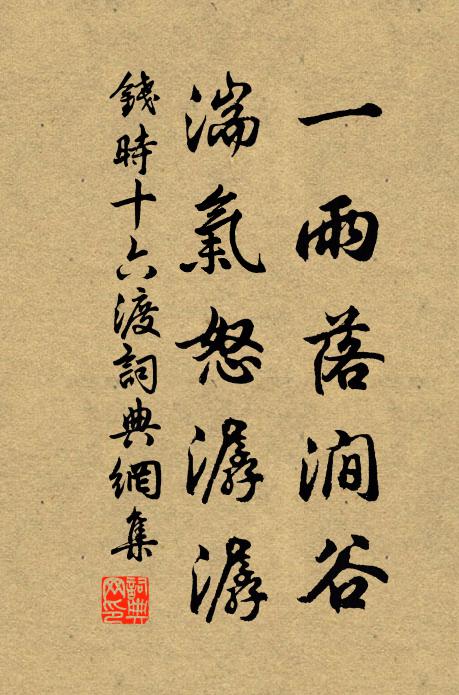 一雨落澗谷
湍氣怒潺潺
錢時十六渡詞典網集
詞典网印